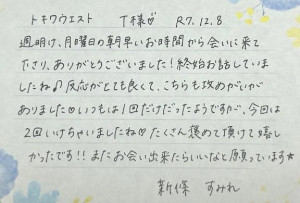 トキワウエスト T様♡ R7.12.8
週明け、月曜日の朝早いお時間から会いに来て
下さり、ありがとうございました!終始お話していま
したね♪反応がとても良くて、こちらも攻めがいが
ありました♡いつもは1回だけだったようですが、今回は
2回いけちゃいましたね♡たくさん褒めて頂けて嬉し
かったです!!またお会い出来たらいいなと願っています★
新條 すみれ